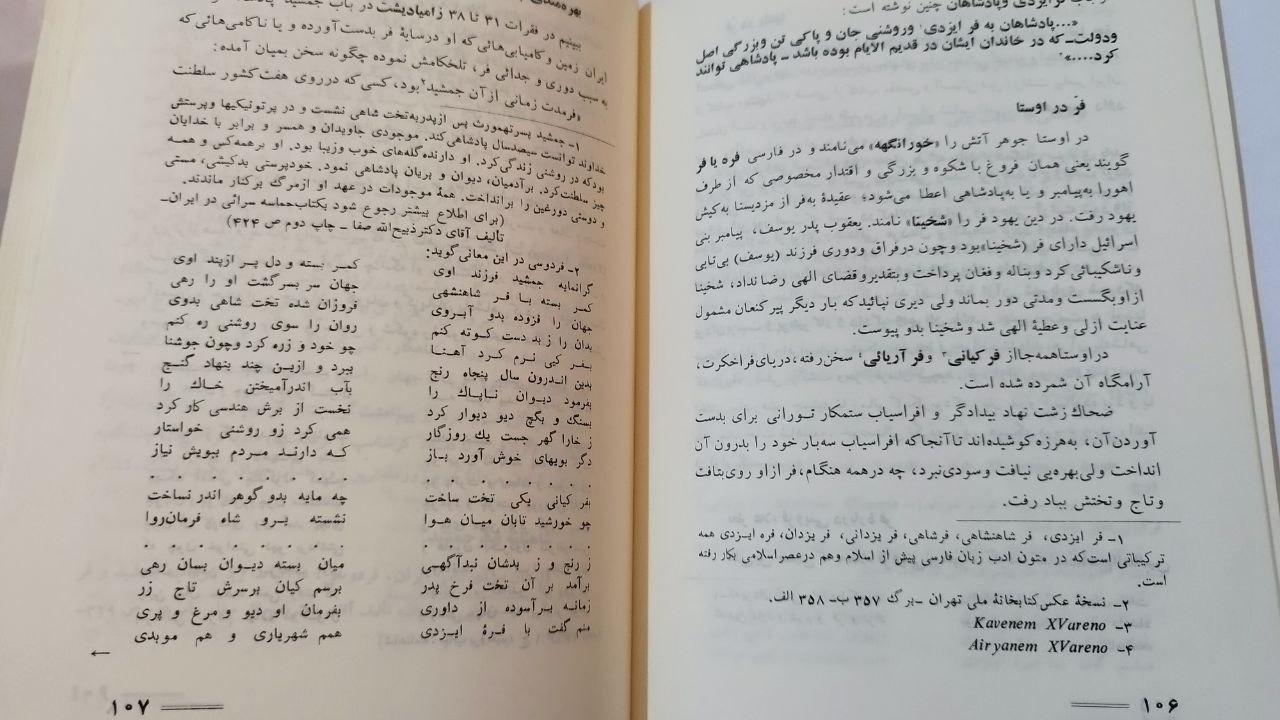 فرایزدی وپادشاهان چنین نوشته است :
«...پادشاهان به فر ایزدی۱ وروشنی جان و پاکی تن وبزرگی اصل
ودولت-که در خاندان ایشان در قدیم الایام بوده باشد - پادشاهی توانند
کرد....»۲
فرّ در اوستا
در اوستا جوهر آتش را «خورانگهه» می‌نامند و در فارسی فره یا فر
گویند یعنی همان فروغ با شکوه و بزرگی و اقتدار مخصوصی که از طرف
اهورا به‌پیامبر و یا به‌پادشاهی اعطا می‌شود؛ عقیدهٔ به‌فر از مزدیسنا به‌کیش
یهود رفت. در دین یهود فر را «شخینا» نامند. یعقوب پدر یوسف، پیامبر بنی
اسرائیل دارای فر (شخینا)بود و چون درفراق ودوری فرزند (یوسف) بی‌تابی
و ناشکیبائی کرد و بناله و فغان پرداخت و بتقدیر وقضای الهی رضا نداد، شخینا
از او بگسست و مدتی دور بماند ولی دیری نپائید که بار دیگر پیر کنعان مشمول
عنایت ازلی و عطیهٔ الهی شد و شخینا بدو پیوست.
در اوستا همه‌جا از فر کیانی۳ و فر آریائی۴ سخن رفته، دریای فراخکرت،
آرامگاه آن شمرده شده است.
ضحاک زشت نهاد بیدادگر و افراسیاب ستمکار تورانی برای بدست
آوردن آن، به‌هرزه کوشیده‌اند تا آنجا که افراسیاب سه‌بار خود را بدرون آن
انداخت ولی بهره‌یی نیافت و سودی نبرد، چه درهمه هنگام، فر از او روی بتافت
و تاج و تختش بباد رفت.
۱- فر ایزدی، فر شاهنشاهی، فرشاهی، فر یزدانی، فر یزدان، فره ایزدی همه
ترکیباتی است که در متون ادب زبان فارسی پیش از اسلام وهم درعصراسلامی بکار رفته
است.
۲- نسخهٔ عکس کتابخانهٔ ملی تهران -برگ ۳۵۷ ب- ۳۵۸ الف.
۳- Kavenem XVareno
۴- Airyanem XVareno
۱۰۶
ببینیم در فقرات ۳۱ تا ۳۸ زامیادیشت در باب جمشید
ایران زمین و کامیابی‌هائی که او درسایهٔ فر بدست‌آورده و یا ناکامی‌هائی که
به سبب دوری و جدائی فر، تلخکامش نموده چگونه سخن بمیان آمده :
«فرمدت زمانی از آن جمشید۲ بود، کسی که درروی هفت کشور سلطنت
۱- جمشید پسرتهمورث پس ازپدربه‌تخت شاهی نشست و در پرتونیکیها وپرستش
خداوند توانست سیصدسال پادشاهی کند. موجودی جاویدان و همسر و برابر با خدایان
بودکه در روشنی زندگی‌کرد. او دارنده‌گله‌های خوب وزیبا بود. او برهمه‌کس و همه
چیز سلطنت‌کرد. برآدمیان، دیوان و پریان پادشاهی نمود. خودپرستی بدکیشی، مستی
و دوستی دورغین را برانداخت. همهٔ موجودات در عهد او ازمرگ برکنار ماندند.
(برای اطلاع بیشتر رجوع شود بکتاب‌حماسه سرائی در ایران-
تألیف آقای دکترذبیح‌الله صفا - چاپ دوم ص ۴۲۴)
۲- فردوسی در این معانی گوید:
گرانمایه جمشید فرزند اوی کمر بسته و دل پر ازپند اوی
کمر بسته با فر شاهنشهی جهان سر بسرگشت او را رهی
جهان را فزوده بدو آبروی فروزان شده تخت شاهی بدوی
بدان را ز بد دست کوته کنم روان را سوی روشنی ره کنم
بفر کیی نرم کرد آهنا چو خود و زره کرد وچون جوشنا
بدین اندرون سال پنجاه رنج ببرد و ازین چند بنهاد گنج
بفرمود دیوان ناپاک را بآب اندرآمیختن خاک را
بسنگ و بگچ دیو دیوار کرد نخست از برش هندسی کار کرد
ز خارا گهر جست یک روزگار همی کرد زو روشنی خواستار
دگر بویهای خوش آورد باز که دارند مردم ببویش نیاز
. . . . . . . . . . . .
بفر کیانی یکی تخت ساخت چه مایه بدو گوهر اندر نساخت
چو خورشید تابان میان هوا نشسته برو شاه فرمان‌روا
. . . . . . . . . . . .
ز رنج و ز بدشان نبدآگهی میان بسته دیوان بسان رهی
برآمد بر آن تخت فرخ پدر برسم کیان برسرش تاج زر
زمانه برآسوده از داوری بفرمان او دیو و مرغ و پری
منم گفت با فرهٔ ایزدی همم شهریاری و هم موبدی
←
۱۰۷